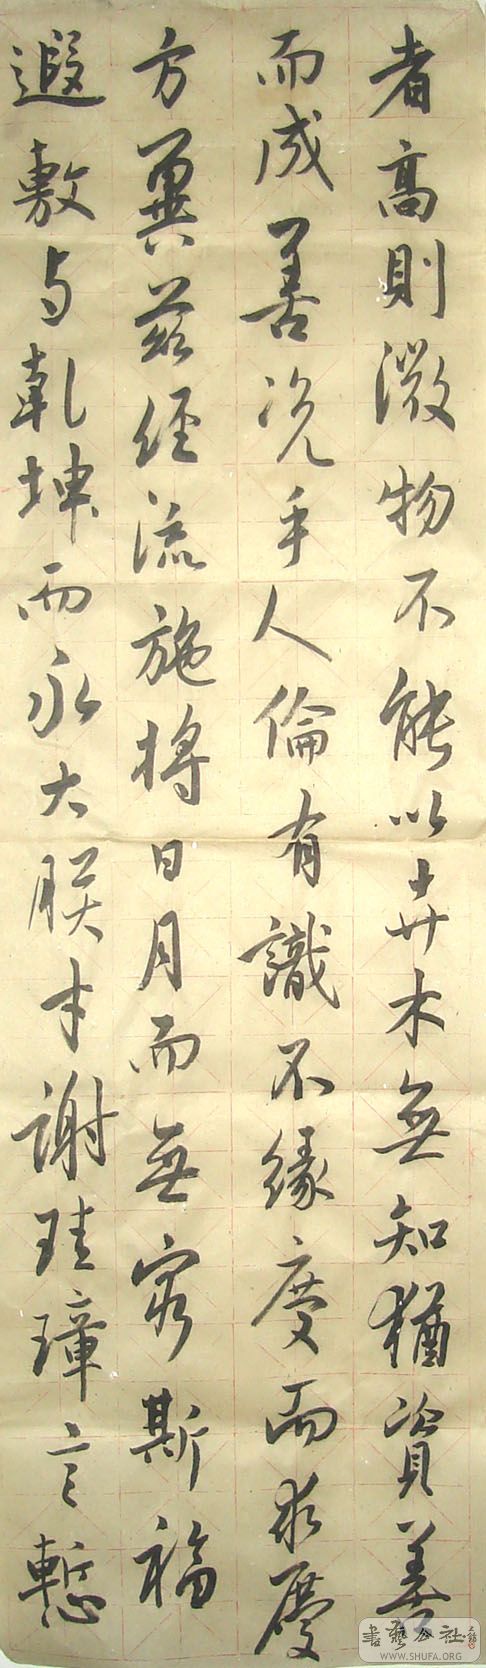 者高則微物不能以卉木無知猶資善
而成善況乎人倫有識不緣慶而求慶
方冀茲經流施將日月而無窮斯福
遐敷与乾坤而永大朕才謝珪璋言慙
書藝公社
WWW.SHUFA.ORG